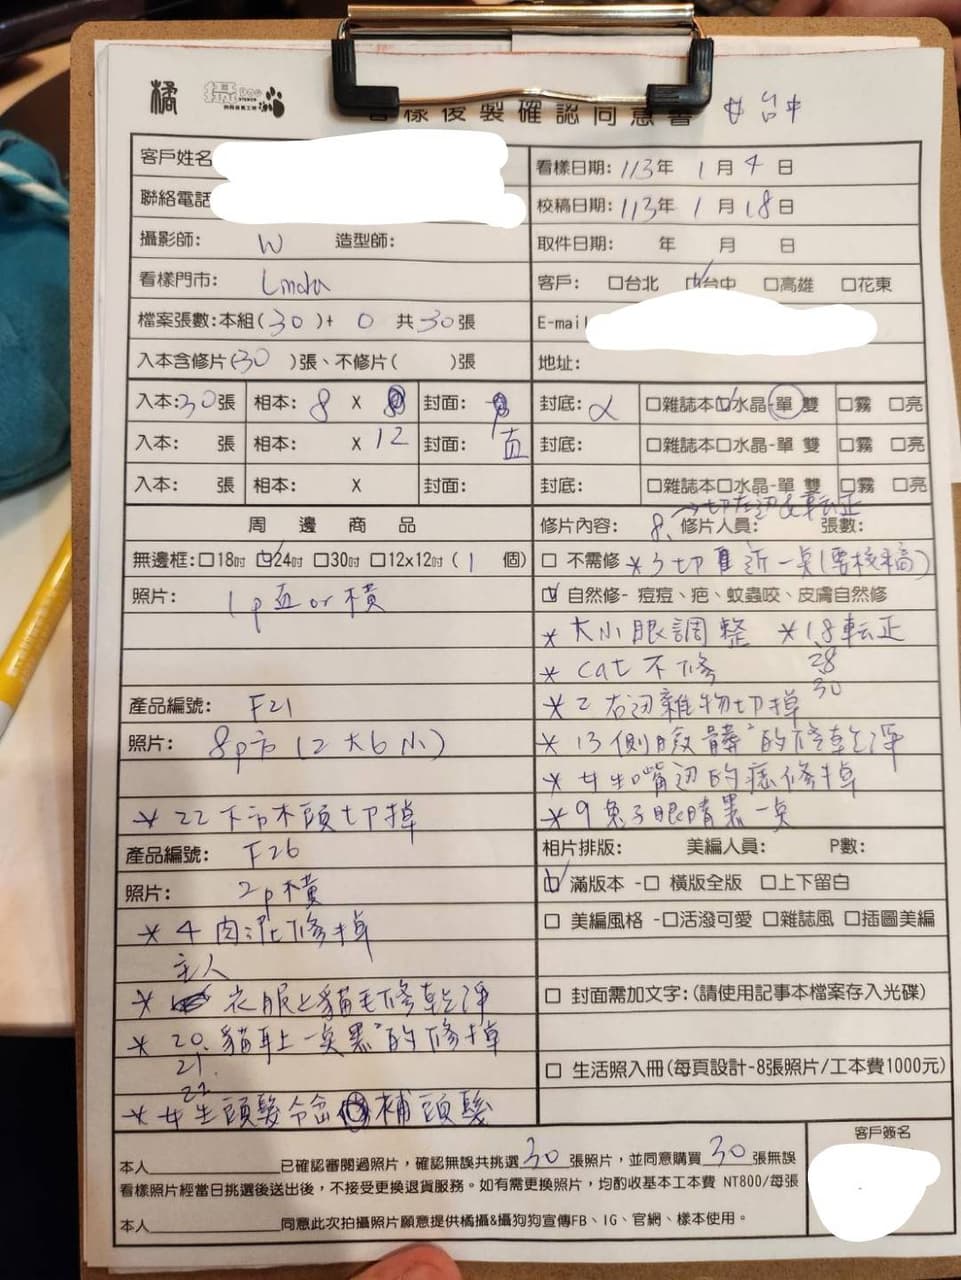 橘
看樣後製確認同意書 台中
客戶姓名
看樣日期: 113年 1月 4日
聯絡電話
校稿日期: 113年 1月 18日
攝影師: W 造型師:
取件日期: 年 月 日
看樣門市:
客戶: □台北 ☑台中 □高雄 □花東
檔案張數:本組(30)+ 0 共30張
E-mail
入本含修片(30 )張、不修片( )張
地址:
入本:30張 相本: 8 X 封面: 封底: □雜誌本☑水晶-單 雙 □霧 □亮
入本: 張 相本: X 12 封面: 直 封底: □雜誌本□水晶-單 雙 □霧 □亮
入本: 張 相本: X 封面: 封底: □雜誌本□水晶-單 雙 □霧 □亮
周邊商品
無邊框:□18吋 ☑24吋 □30吋 □12x12吋 (1 個)
照片: 1p直or橫
產品編號: F21
照片: 8p 方 (2大6小)
* 22 下方木頭切掉
產品編號: F26
照片: 2p橫
* 4 肉泥修掉
主人
* 衣服上貓毛修乾淨
* 20. 貓耳上一點黑的修掉
21.
22
* 女生頭髮 補頭髮
→切左边&転正
修片內容: 8. 修片人員: 張數:
□ 不需修 *3切 近一點(要校稿)
☑ 自然修- 痘痘、疤、蚊蟲咬、皮膚自然修
* 大小眼調整 *18転正
28
30
* cat 不修
* 2 右边雜物切掉
* 13 側臉髒的修乾淨
* 女生嘴边的痣修掉
* 9 兔子眼睛黑一點
相片排版: 美編人員: P數:
☑ 滿版本 -□ 橫版全版 □上下留白
□ 美編風格 -□活潑可愛 □雜誌風 □插圖美編
□ 封面需加文字:(請使用記事本檔案存入光碟)
□ 生活照入冊(每頁設計-8張照片/工本費1000元)
本人____已確認審閱過照片，確認無誤共挑選30張照片，並同意購買30張無誤
看樣照片經當日挑選後送出後，不接受更換退貨服務。如有需更換照片，均酌收基本工本費 NT800/每張
本人____同意此次拍攝照片願意提供橘攝&攝狗狗宣傳FB、IG、官網、樣本使用。
客戶簽名